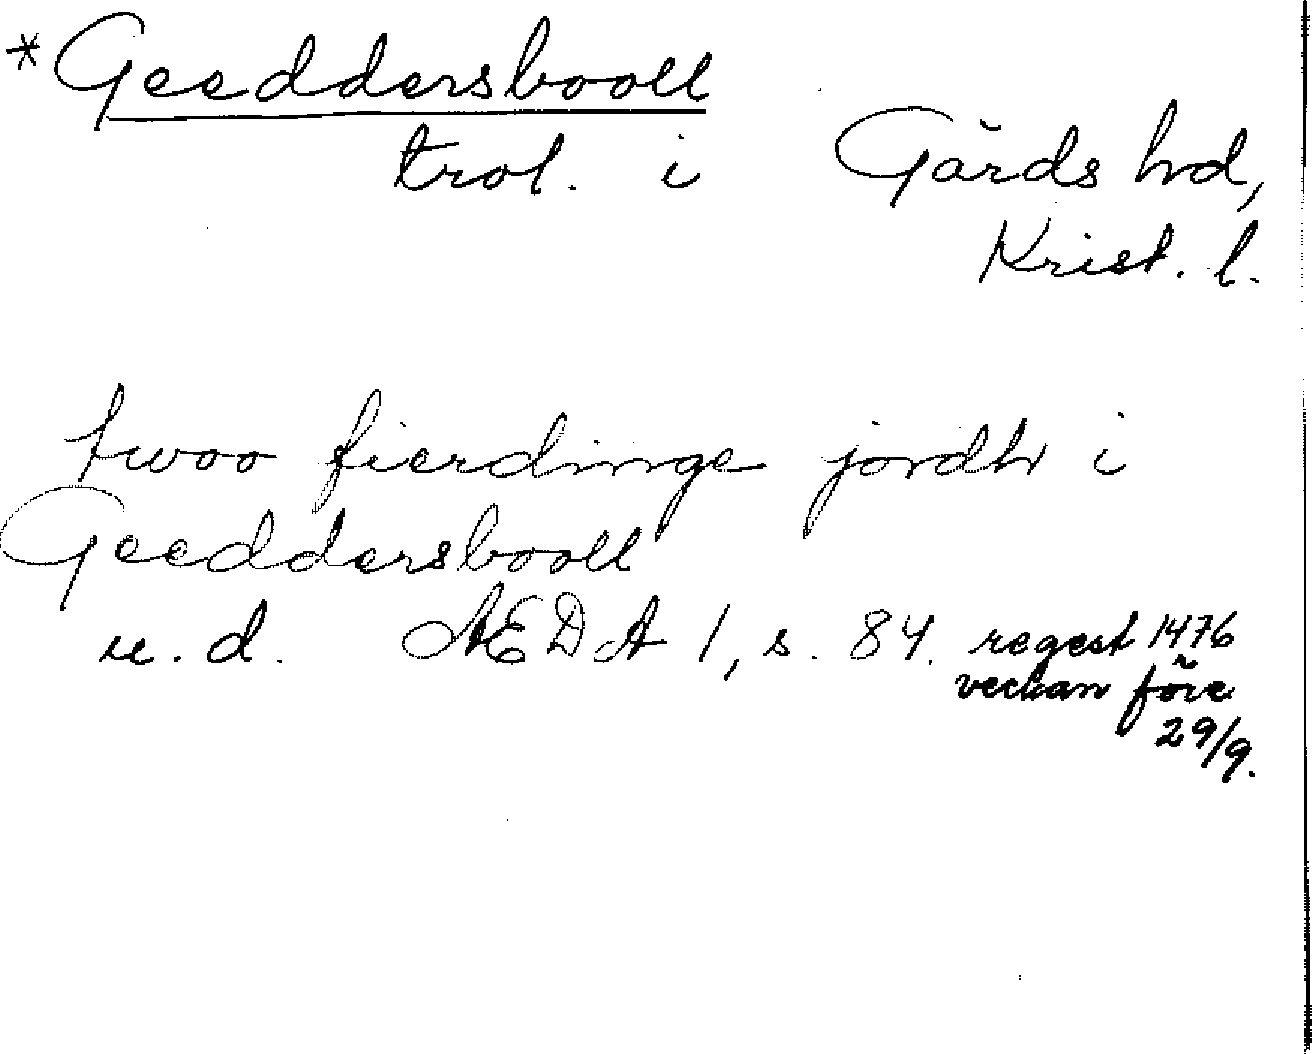 *Geeddersbooll
trol. i Gärds hd,
Krist. l.
twoo fierdinge jordh i
Geeddersbooll
u. d. ÆDA 1, s. 84. regest 1476
veckan före
29/9.